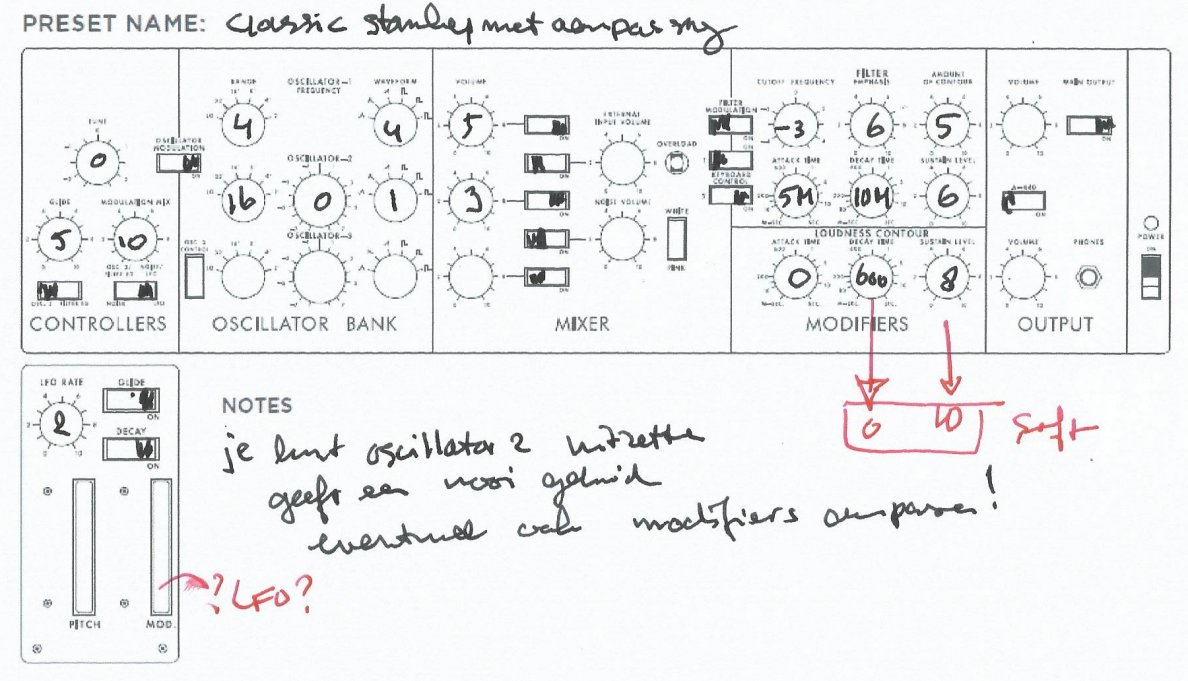 PRESET NAME: Classic stanley met aanpassing
TUNE
0
OSCILLATOR MODULATION
ON
GLIDE
5
MODULATION MIX
10
OSC. 3/ FILTER EG
NOISE/ LFO
OSC. 3
FILTER EG
NOISE
LFO
CONTROLLERS
RANGE
4
OSCILLATOR-1
FREQUENCY
WAVEFORM
4
OSCILLATOR-2
16
0
1
OSCILLATOR-3
OSC. 3 CONTROL
OSCILLATOR BANK
VOLUME
5
3
ON
EXTERNAL INPUT VOLUME
OVERLOAD
NOISE VOLUME
WHITE
PINK
MIXER
FILTER MODULATION
ON
KEYBOARD CONTROL
FILTER
CUTOFF FREQUENCY
EMPHASIS
AMOUNT OF CONTOUR
-3
6
5
ATTACK TIME
DECAY TIME
SUSTAIN LEVEL
5M
10M
6
LOUDNESS CONTOUR
ATTACK TIME
DECAY TIME
SUSTAIN LEVEL
0
600
8
MODIFIERS
VOLUME
MAIN OUTPUT
ON
A-440
ON
VOLUME
PHONES
OUTPUT
POWER
ON
0 10 Soft
LFO RATE
2
GLIDE
ON
DECAY
ON
PITCH
MOD.
?LFO?
NOTES
je kunt oscillator 2 uitzetten
geeft een mooi geluid
eventueel ook modifiers aanpassen!